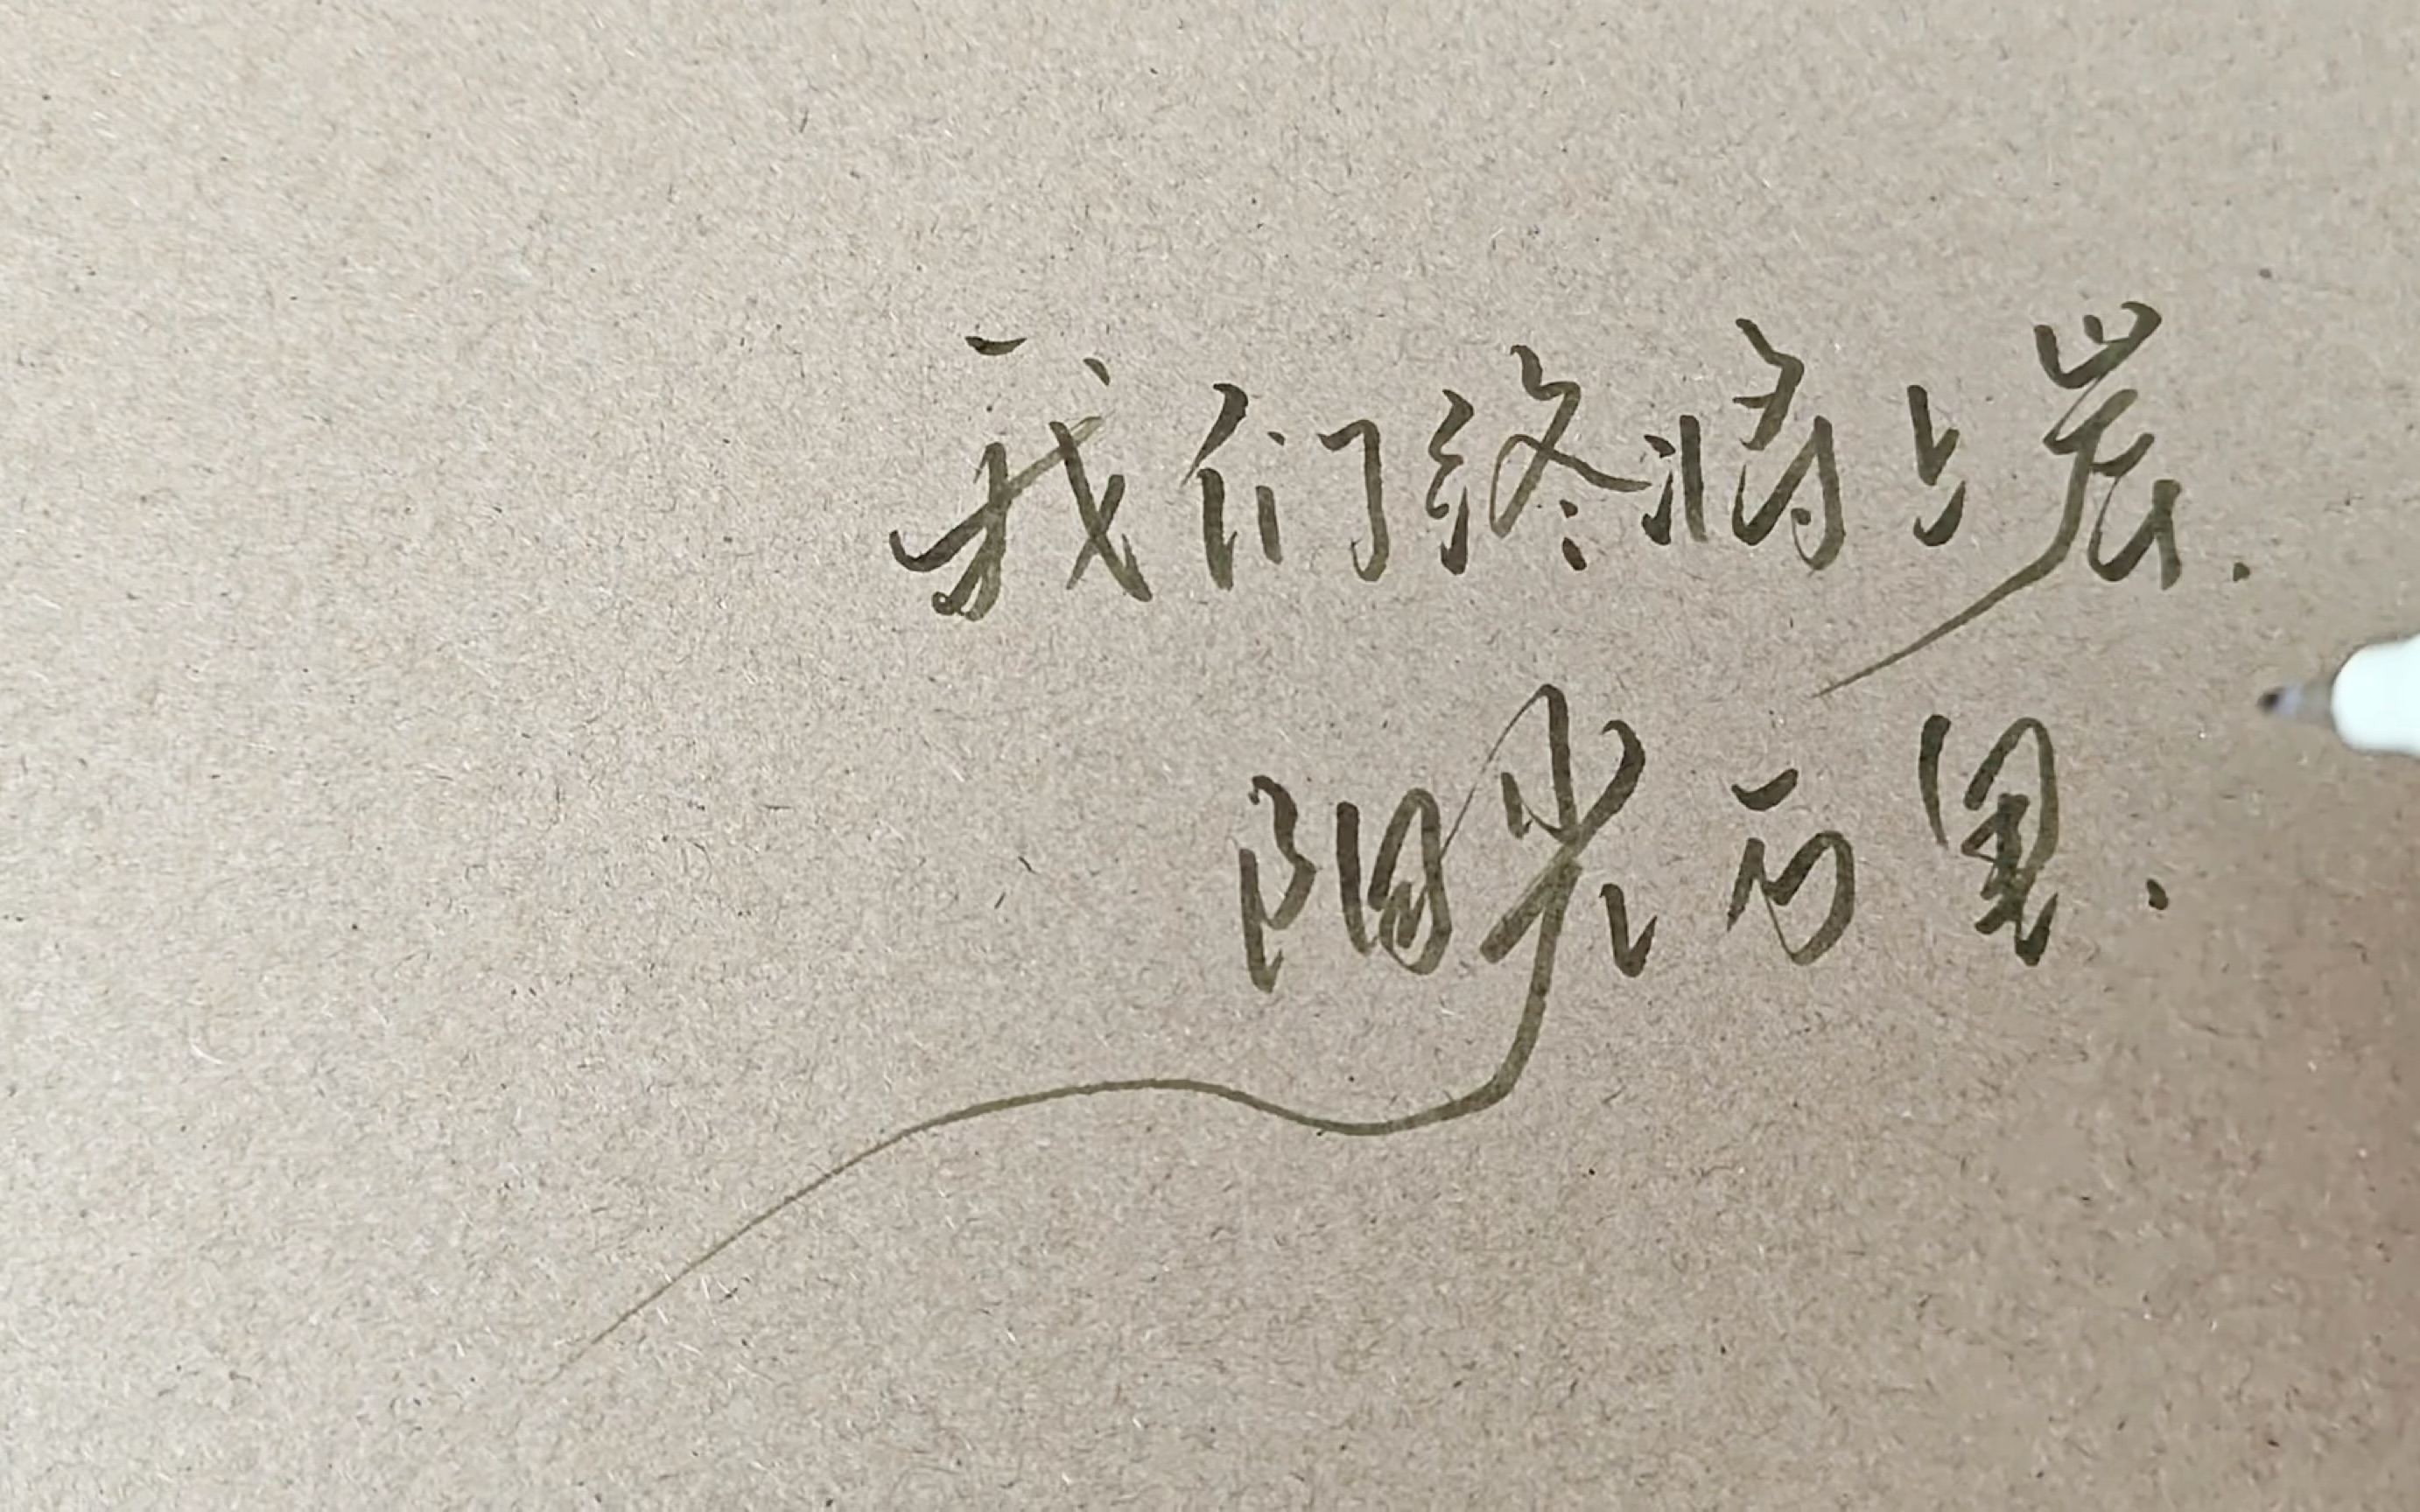 我们终将上岸.
阳光万里.